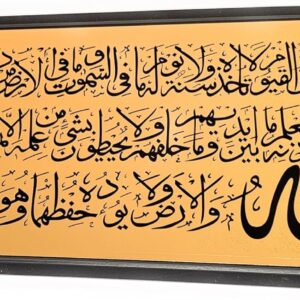 القيوم لا تأخذه سنة ولا نوم له ما في السموت وما في الارض
يعلم ما بين ايديهم وما خلفهم ولا يحيطون بشيء من علمه الا
والارض ولا يوده حفظهما وهو